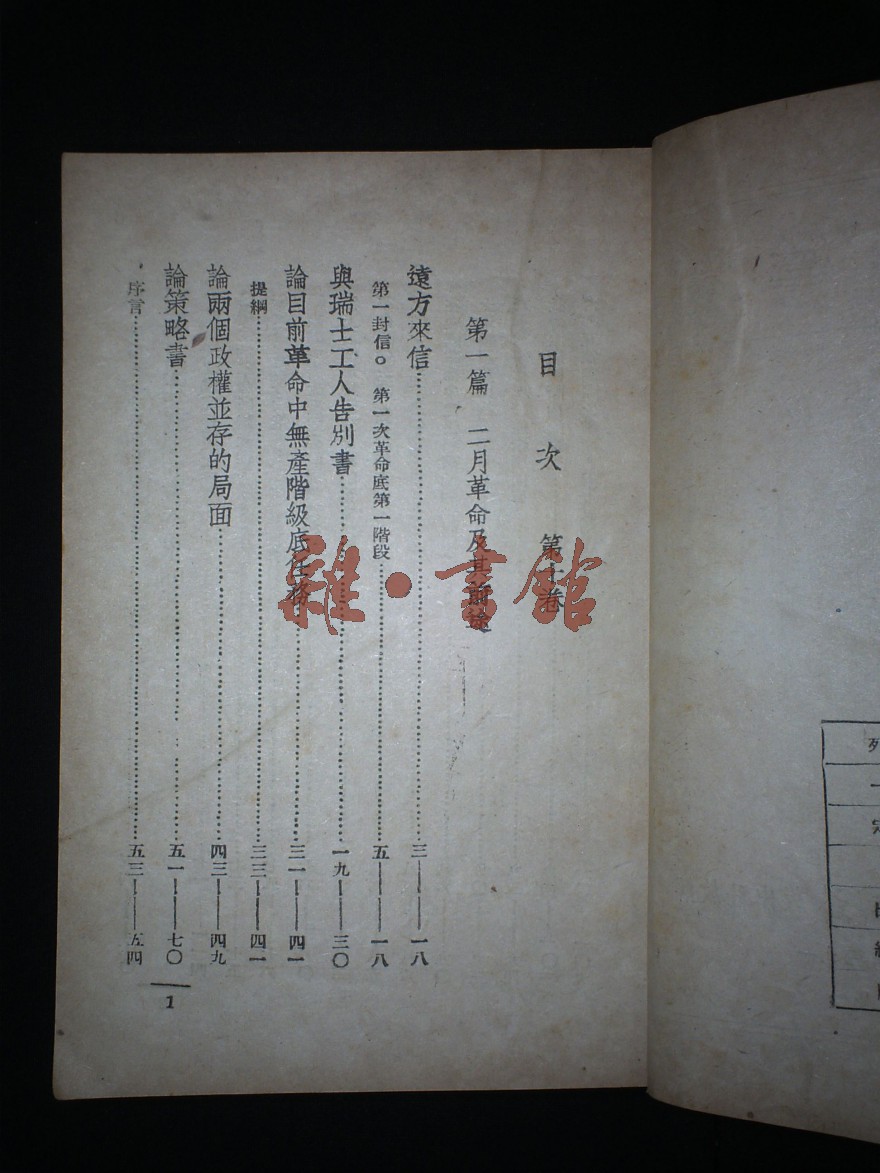 目次 第十卷
第一篇 二月革命及其前途
遠方來信……三——一八
第一封信。 第一次革命底第一階段……五——一八
與瑞士工人告別書……一九——三〇
論目前革命中無產階級底任務……三一——四一
提綱……三三——四一
論兩個政權並存的局面……四三——四九
論策略書……五一——七〇
序言……五三——五四
1
雜·書館